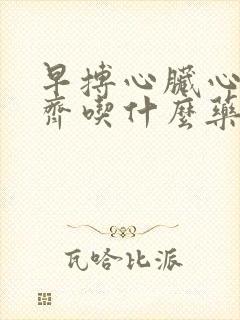 早搏心臟心
齊喫什麼藥
瓦哈比派